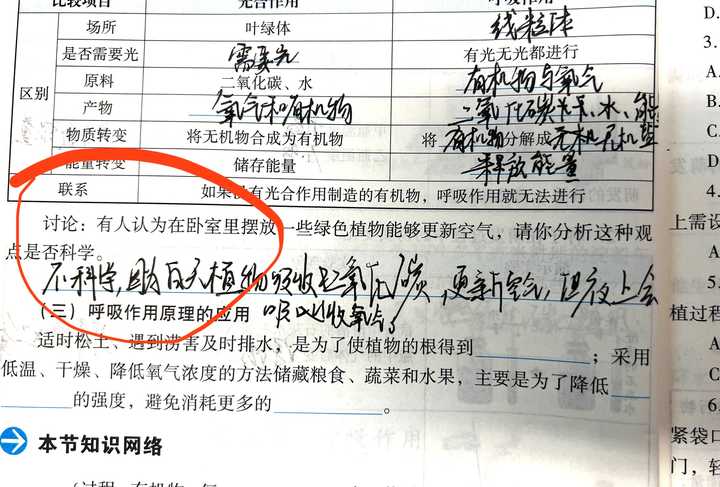 比较项目 光合作用 呼吸作用
场所 叶绿体 线粒体
是否需要光 需要光 有光无光都进行
区别 原料 二氧化碳、水 有机物与氧气
产物 氧气和有机物 二氧化碳、水、能
物质转变 将无机物合成为有机物 将有机物分解成无机
能量转变 储存能量 释放能量
联系 如果没有光合作用制造的有机物，呼吸作用就无法进行
讨论：有人认为在卧室里摆放一些绿色植物能够更新空气，请你分析这种观
点是否科学。
不科学,因为白天植物吸收二氧化碳,更新空气,但夜上会
(三) 呼吸作用原理的应用 吸收氧气。
适时松土、遇到涝害及时排水，是为了使植物的根得到；采用
低温、干燥、降低氧气浓度的方法储藏粮食、蔬菜和水果，主要是为了降低
的强度，避免消耗更多的。
本节知识网络
D.
3.
A.
B.
C.
D
4.
上需设
A
5.
植过程
A
C
6.
紧袋口
门，轻